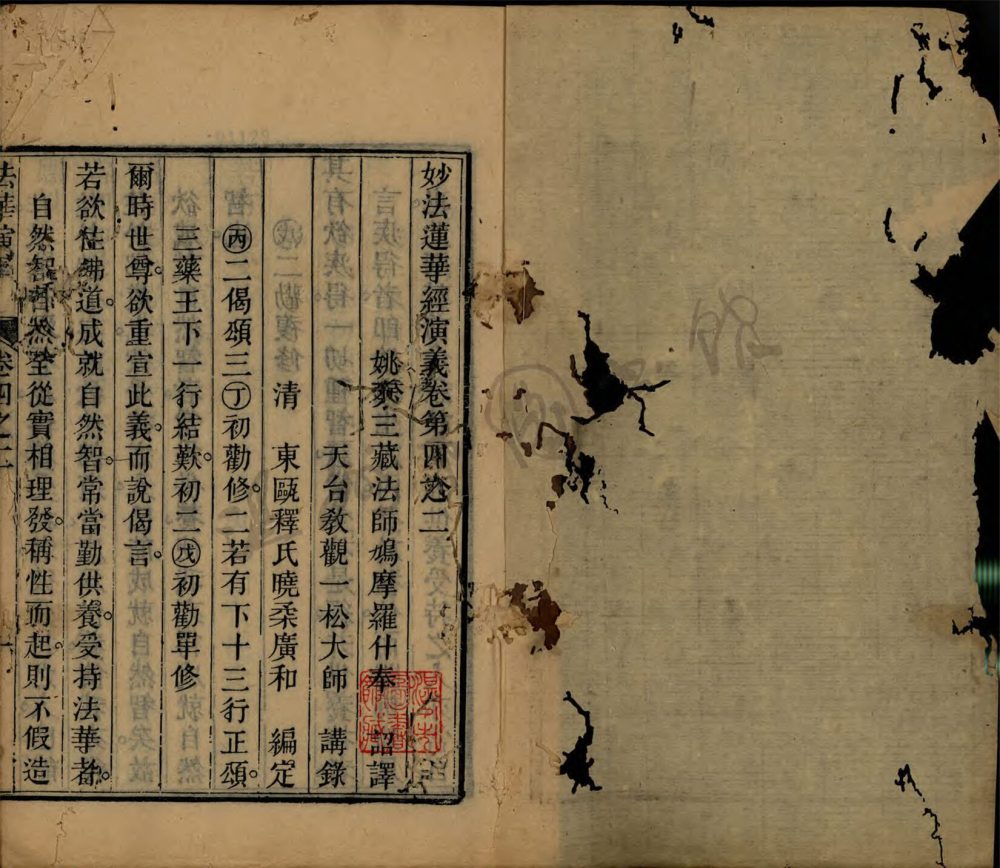 妙法蓮華經演義卷第四之二
姚秦三藏法師鳩摩羅什奉 詔譯
天台教觀一松大師 講錄
清 東甌釋氏曉柔廣和 編定
丙二偈頌三丁初勸修二若有下十三行正頌
三藥王下一行結歎初二戊初勸單修
爾時世尊欲重宣此義而說偈言
若欲住佛道成就自然智常當勤供養受持法華者
自然智者然全從實相理發稱性而起則不假造
法華演義 卷四之二 一
館